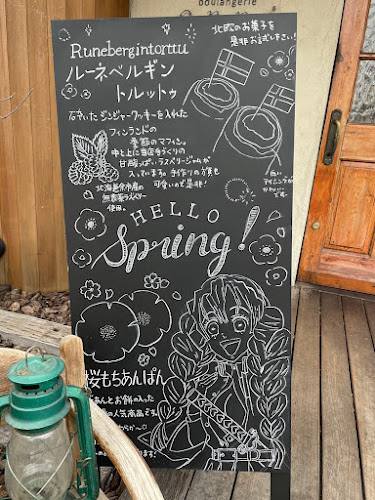 boulangerie
Runebergintorttu
ルーネベルギン
トルットゥ
北欧のお菓子を
是非お試し下さい!
砕いたジンジャークッキーを入れた
フィンランドの
季節のマフィン。
中と上に当店手づくりの
甘酸っぱいラズベリージャムが
入っています。手作りの旗も
可愛いので是非!
北海道余市産の
無農薬ラズベリー
使用。
白い
アイシングが
かわいい
です。
HELLO
Spring!
桜もちあんぱん
あんとお餅の入った
の人気商品です。